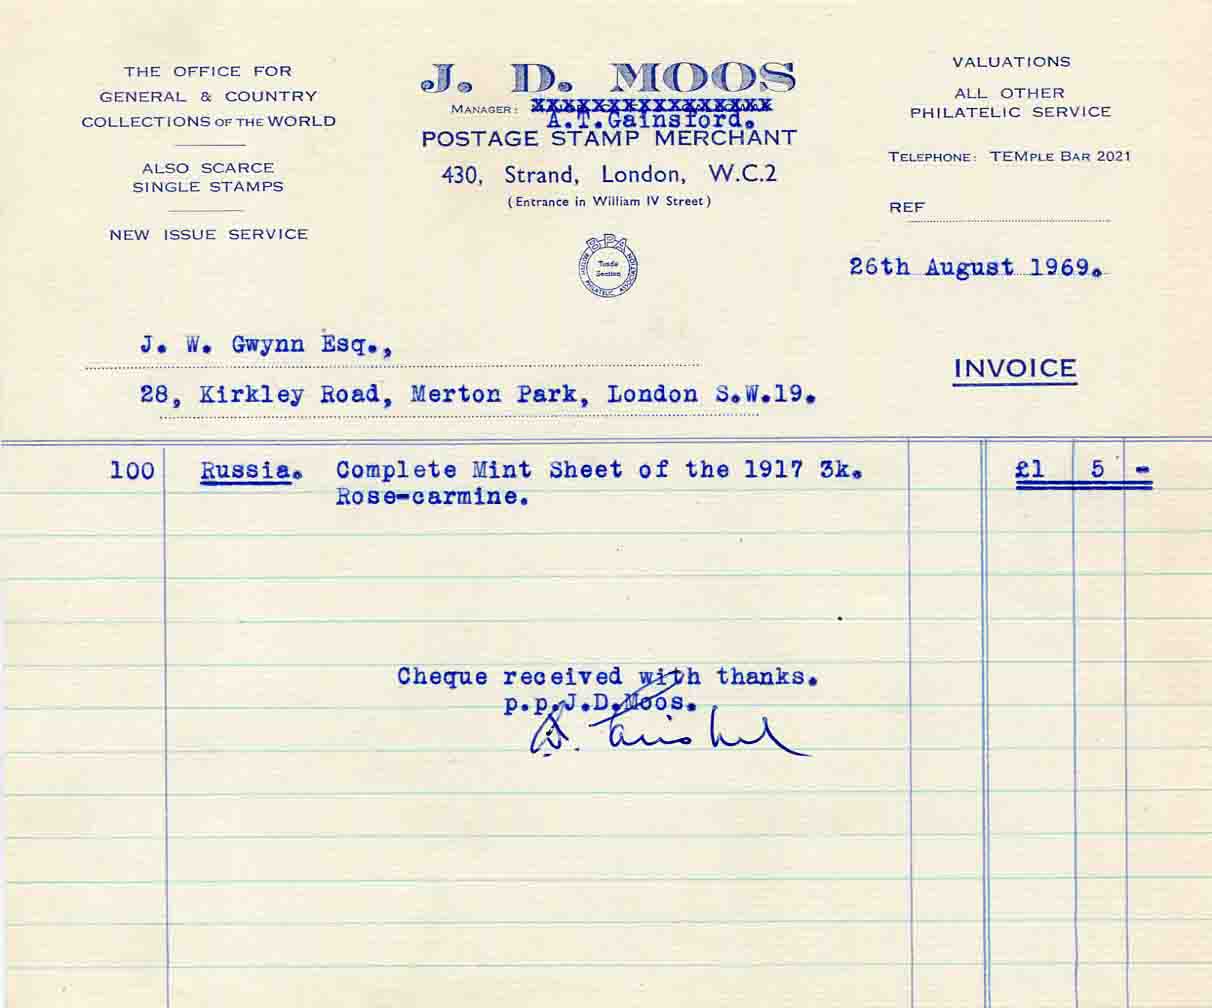 THE OFFICE FOR
GENERAL & COUNTRY
COLLECTIONS OF THE WORLD
ALSO SCARCE
SINGLE STAMPS
NEW ISSUE SERVICE
J. D. MOOS
MANAGER: XXXXXXXXXXXXXXXX
A.T.Gainsford.
POSTAGE STAMP MERCHANT
430, Strand, London, W.C.2
(Entrance in William IV Street)
BPA
Trade
Section
PHILATELIC ASSOCIATION
VALUATIONS
ALL OTHER
PHILATELIC SERVICE
TELEPHONE: TEMPLE BAR 2021
REF
26th August 1969.
J. W. Gwynn Esq.,
28, Kirkley Road, Merton Park, London S.W.19.
INVOICE
100 Russia. Complete Mint Sheet of the 1917 3k. £1 5 -
Rose-carmine.
Cheque received with thanks.
p.p.J.D.Moos.